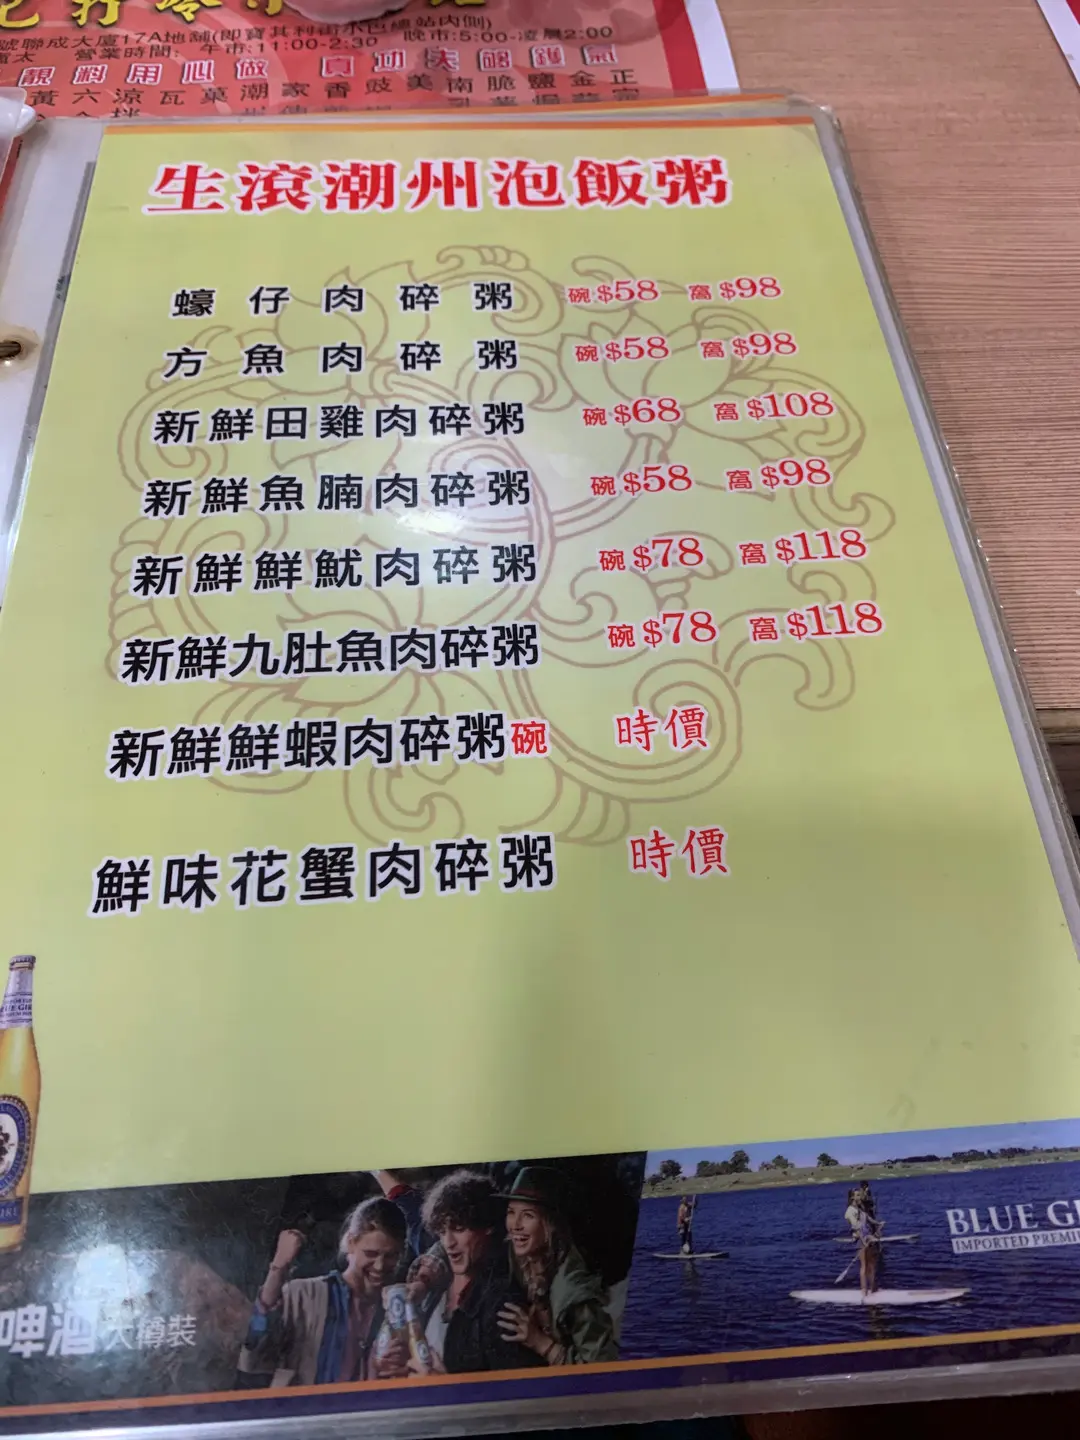 號聯成大廈17A地舖(即寶其利街小巴總站內側)
營業時間: 午市:11:00-2:30 晚市:5:00-凌晨2:00
靚料用心做 真功夫夠鑊氣
黃六涼瓦菓潮家香豉美南脆鹽金正
生滾潮州泡飯粥
蠔仔肉碎粥 碗$58 窩$98
方魚肉碎粥 碗$58 窩$98
新鮮田雞肉碎粥 碗$68 窩$108
新鮮魚腩肉碎粥 碗$58 窩$98
新鮮鮮魷肉碎粥 碗$78 窩$118
新鮮九肚魚肉碎粥 碗$78 窩$118
新鮮鮮蝦肉碎粥碗 時價
鮮味花蟹肉碎粥 時價
BLUE G
IMPORTED PREMI
啤酒大樽裝